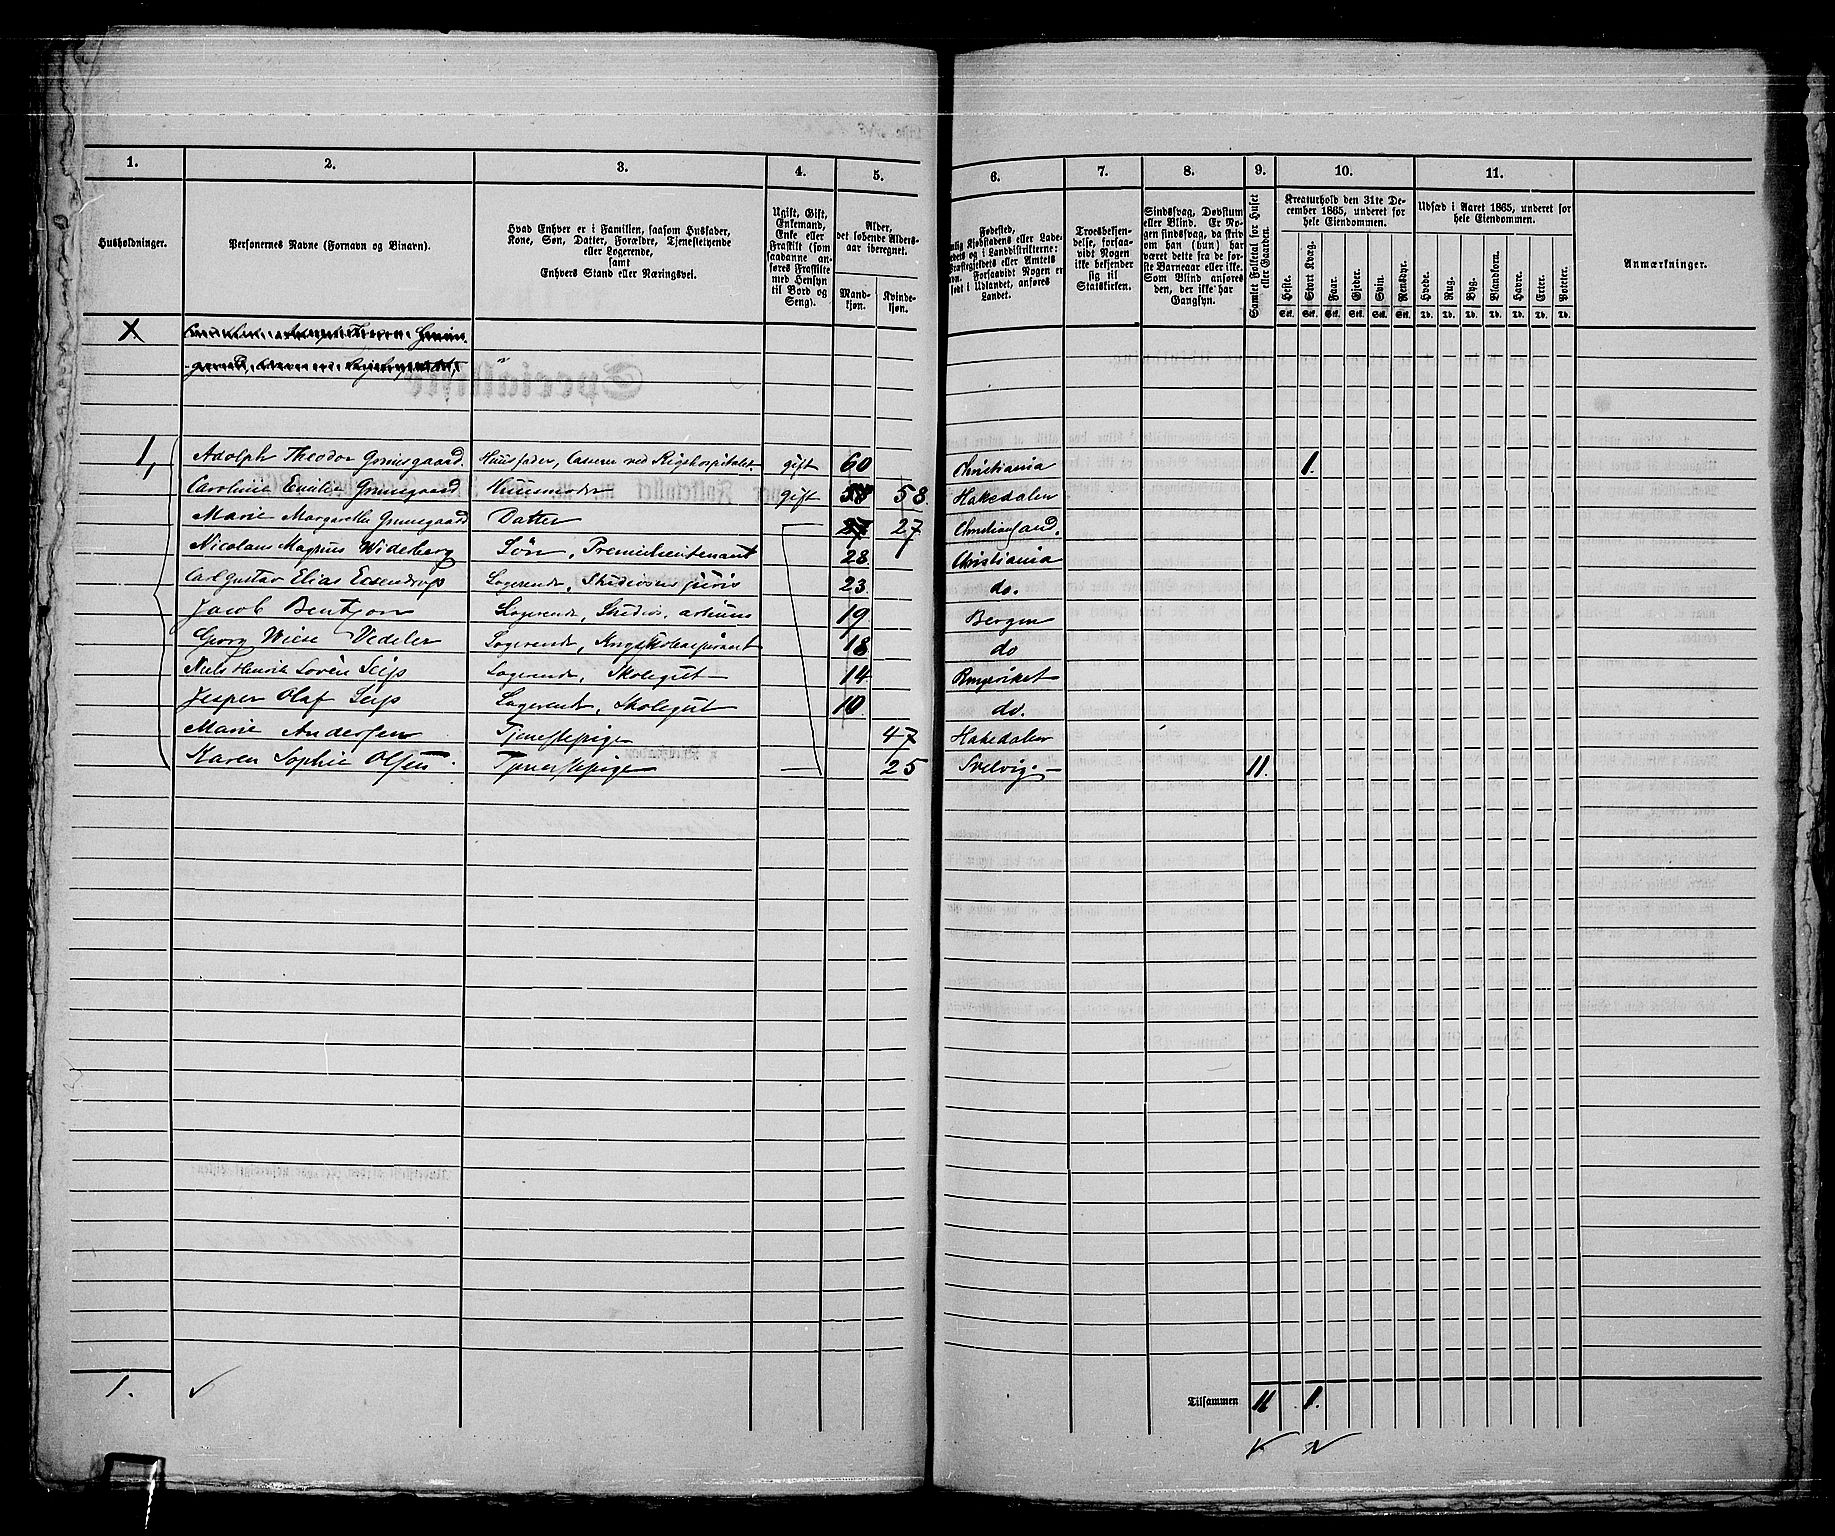 1. 2. 3. 4. 5. 6. 7. 8. 9. 10. 11.
Husholdninger.
Personernes Navne (Fornavn og Binavn).
Hvad Enhver er i Familien, saasom Husfader,
Kone, Søn, Datter, Forældre, Tjenestetyende
eller Logerende,
samt
Enhvers Stand eller Næringsvei.
Ugift, Gift,
Enkemand,
Enke eller
Fraskilt (som
saadanne an-
føres Fraskilte
med Hensyn
til Bord og
Seng).
Alder,
det løbende Alders-
aar iberegnet.
Mand-
kjøn.
Kvinde-
kjøn.
Fødested,
Troesbekjen-
delse, forsaa-
vidt Nogen
ikke bekjender
sig til
Statskirken.
Sindssvag, Døvstum
eller Blind. Er No-
gen sindssvag, da skriv
om han (hun) har
været dette fra de før-
ste Barneaar eller ikke.
Som Blind anføres
den, der ikke har
Gangsyn.
Samlet Folketal for Huset
eller Gaarden.
Kreaturhold den 31te De-
cember 1865, underet for
hele Eiendommen.
Heste. Stort Kvæg. Faar. Gjeder. Svin. Rensdyr.
Stk. Stk. Stk. Stk. Stk. Stk.
Udsæd i Aaret 1865, underet for
hele Eiendommen.
Hvede. Rug. Byg. Blandkorn. Havre. Erter. Poteter.
Td. Td. Td. Td. Td. Td. Td.
Anmærkninger.
1, Adolph Theodor Grimsgaard. Huusfader, Casserer ved Rigshospitalet gift 60 Christiania 1.
Caroline Emilie Grimsgaard Huusmoder gift 58 Hakedalen
Marie Margarethe Grimsgaard Datter 27 27 Christiansand.
Nicolaus Magnus Wideberg Søn, Premierlieutenant 28 Christiania
Carl Gustav Elias Logerende, Studiosus juris 23 do.
Jacob Bentzon Logerende, Studios. artium 19 Bergen
Georg Wiese Vedeler Logerende, 18 do
Niels Henrik Søren Seip Logerende, Skolegut 14 Ringeriket
Jesper Olaf Seip Logerende, Skolegut 10 do.
Marie Andersen Tjenestepige 47 Hakedalen
Karen Sophie Olsen Tjenestepige 25 Svelvig 11.
1. Tilsammen 11 1.